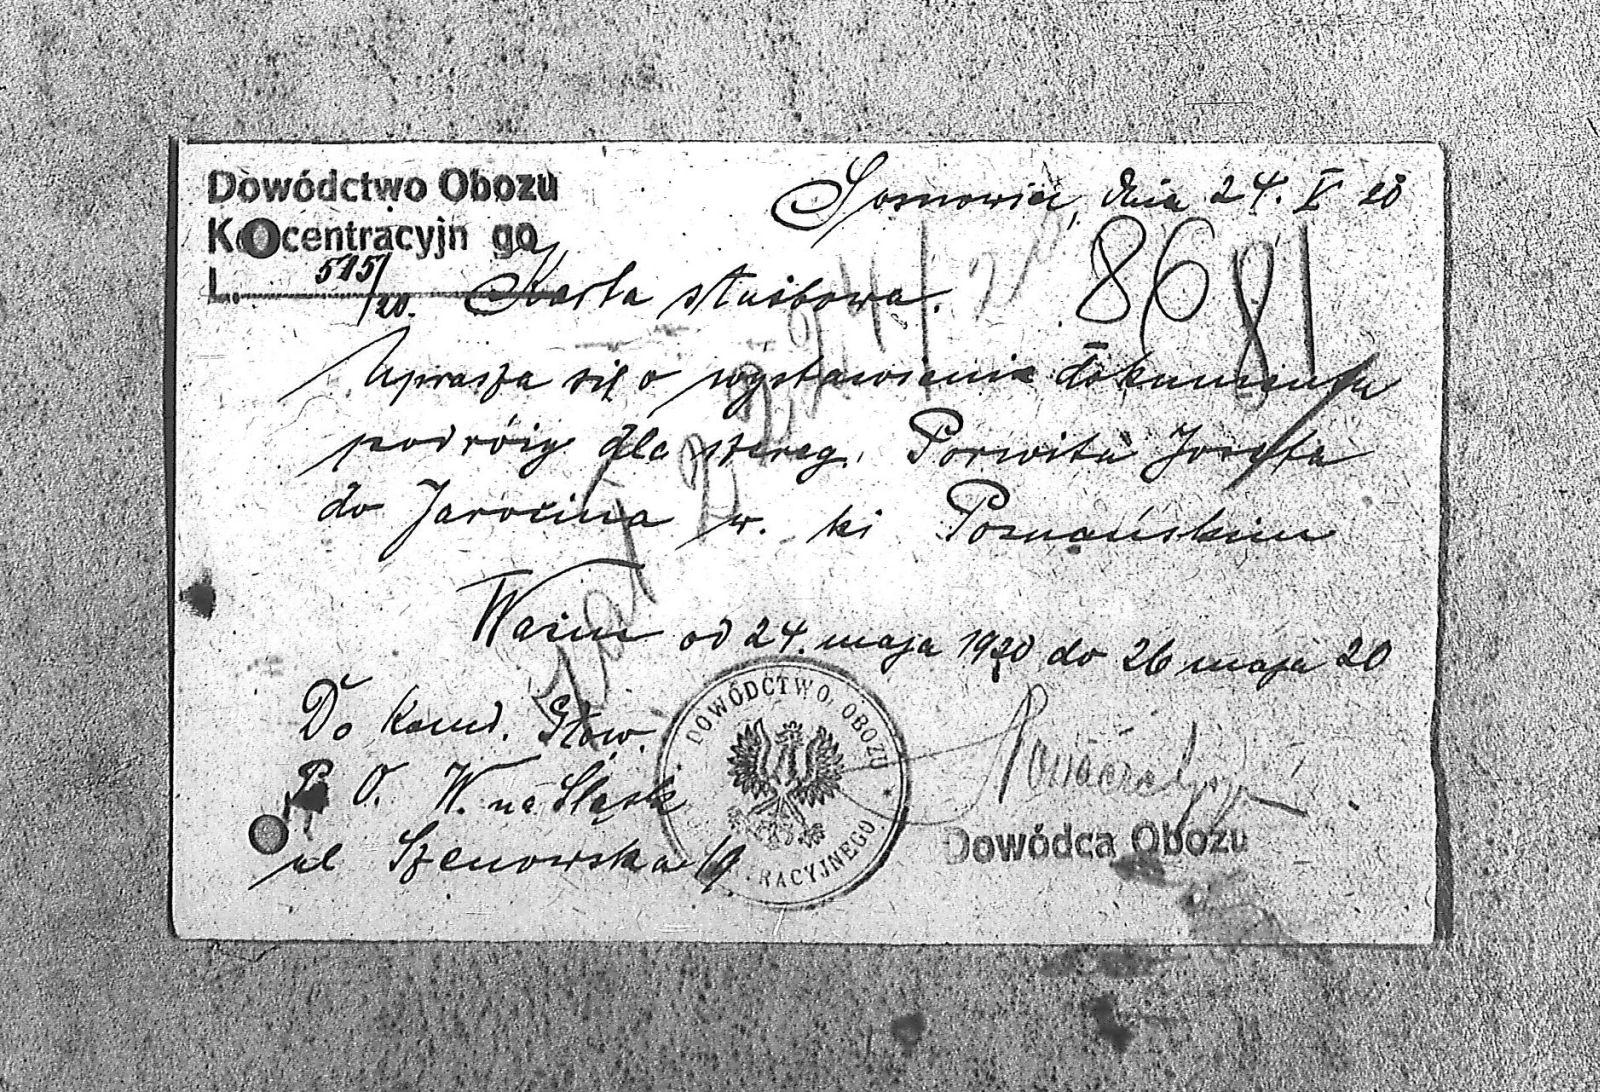 Dowódctwo Obozu
Kocentracyjn go
L. 515/20.
Sosnowiec, dnia 24. V 20
8681
Karta służbowa.
Uprasza się o wystawienie dokumentu
podróży dla szereg. Porwita Josefa
do Jarocina w. ki Poznańskim
Ważne od 24. maja 1920 do 26 maja 20
Do Komd. Głów.
P. O. W. na Śląsk
ul
DOWÓDCTWO OBOZU
RACYJNEGO
Dowódca Obozu